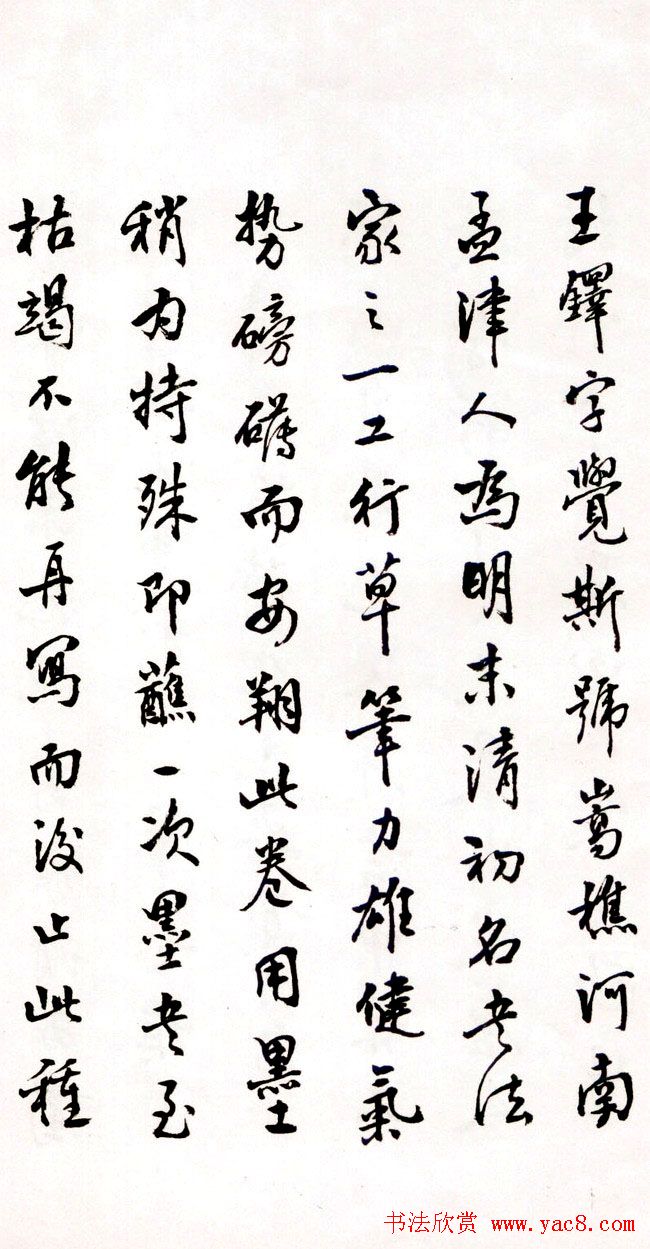 王鐸字覺斯號嵩樵河南
孟津人為明末清初名書法
家之一工行草筆力雄健氣
势磅礴而安翔此卷用墨
稍为特殊即蘸一次墨書至
枯竭不能再寫而後止此種
书法欣赏 www.yac8.com